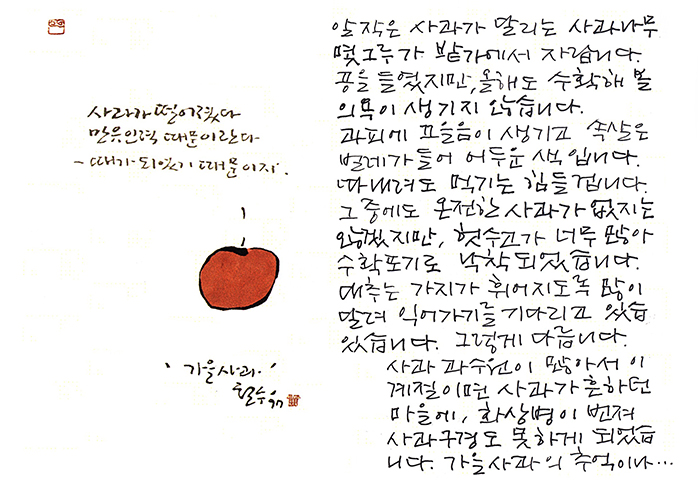 사과가 떨어졌다
만유인력 때문이란다
- 때가 되었기 때문이지.
'가을사과'
철수 97
알 작은 사과가 달리는 사과나무
몇그루가 밭가에서 자랍니다.
꽁을 들였지만, 올해도 수확해 볼
의욕이 생기지 않습니다.
과피에 끄을음이 생기고 속살은
벌레가 들어 어두운 색입니다.
따내려도 먹기는 힘들겁니다.
그 중에도 온전한 사과가 없지는
않겠지만, 헛수고가 너무 많아
수확포기로 낙착되었습니다.
대추는 가지가 휘어지도록 많이
달려 익어가기를 기다리고 있습
있습니다. 그렇게 다릅니다.
사과 과수원이 많아서 이
계절이면 사과가 흔하던
마을에, 화상병이 번져
사과구경도 못하게 되었습
니다. 가을사과의 추억이나…